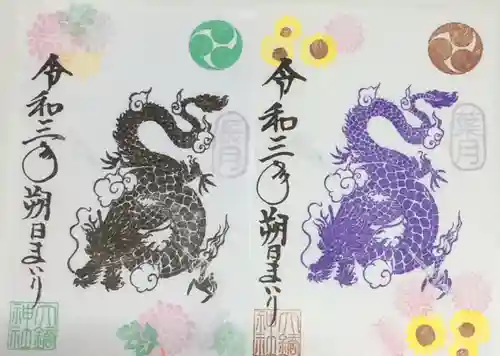 令和三年朔日まいり
長月
神社
令和三年朔日まいり
葉月
神社